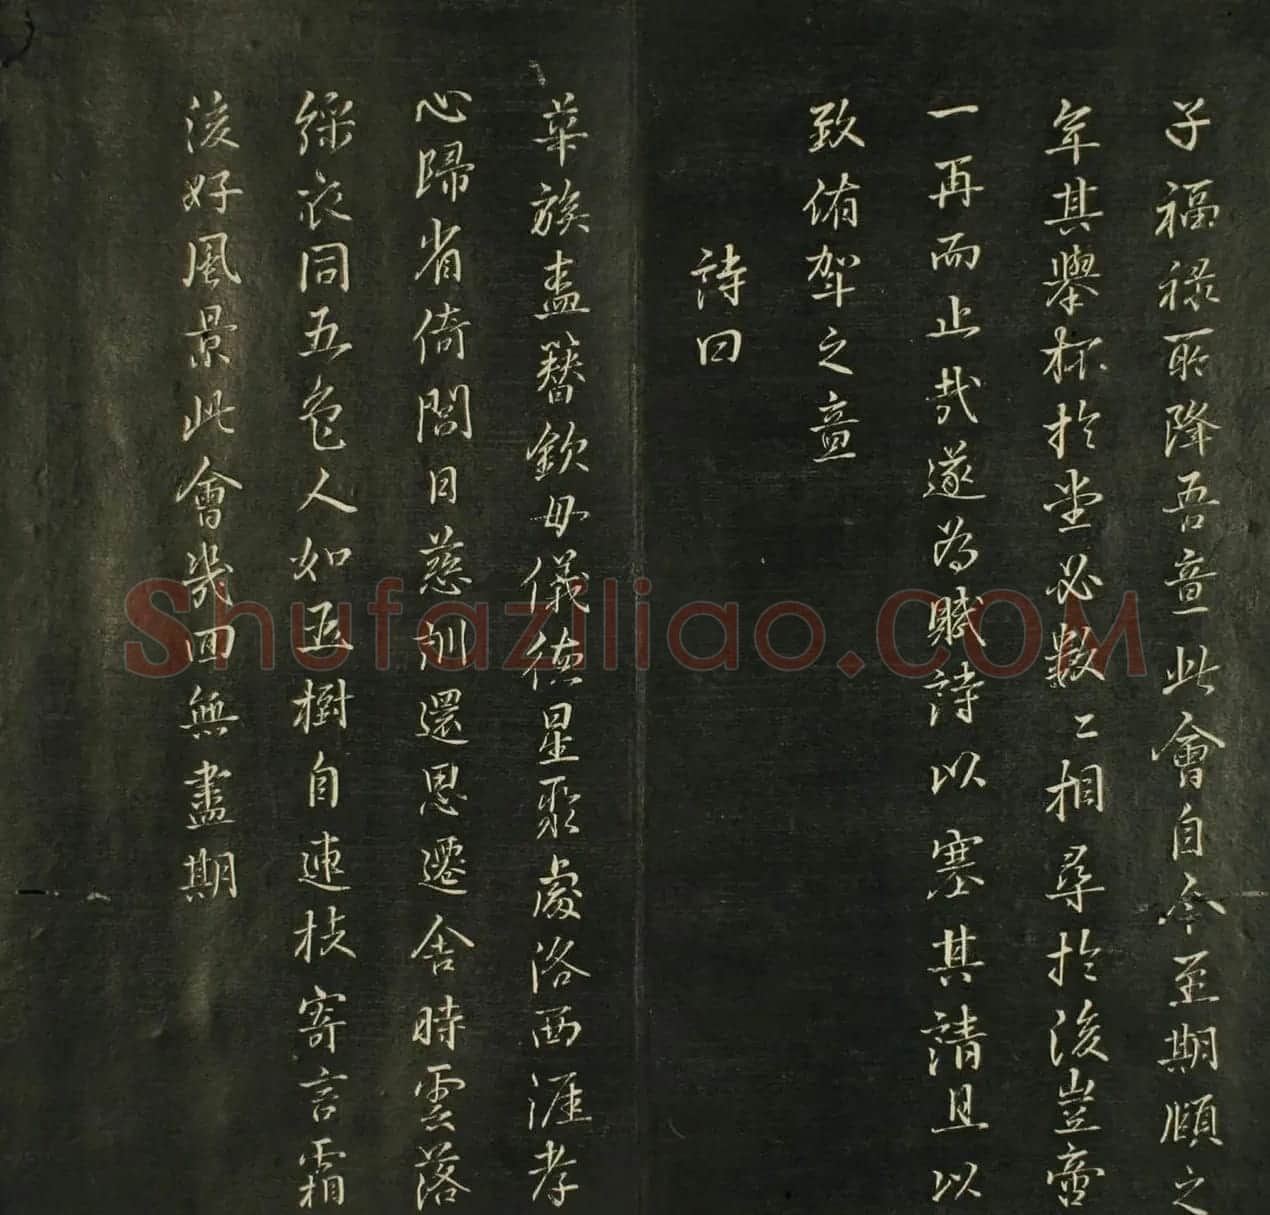 子福祿所降吾意此會自今至期頤之
年其舉杯於堂必數〻相尋於後豈啻
一再而止哉遂為賦詩以塞其請且以
致侑斝之意
詩曰
華族盍簪欽母儀德星聚處洛西涯孝
心歸省倚閭日慈訓還思遷舍時雲落
綵衣同五色人如玉樹自連枝寄言霜
後好風景此會幾回無盡期
Shufaziliao.COM